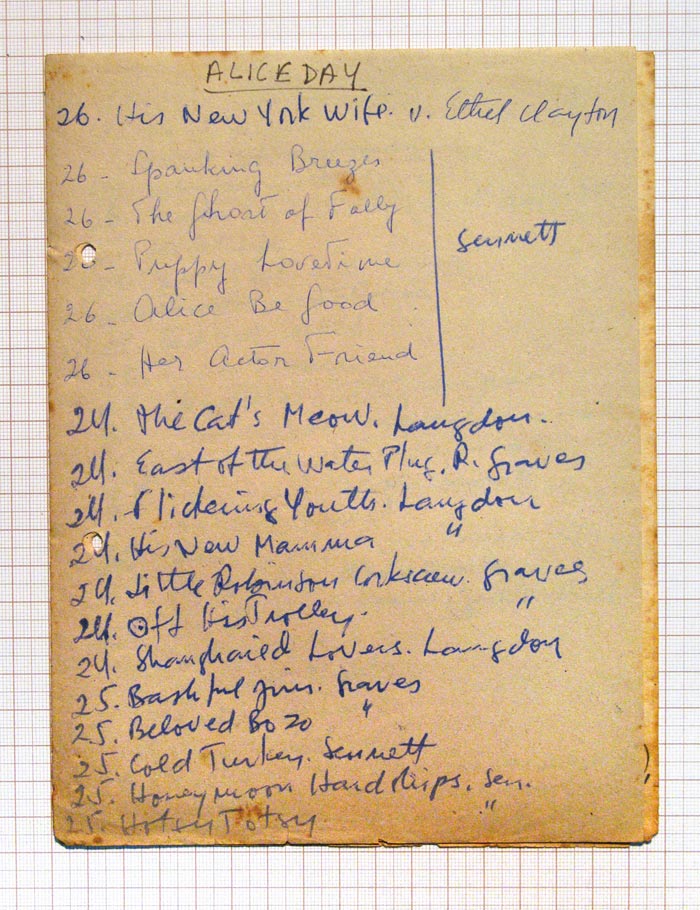 ALICE DAY
26. His New York Wife. v. Ethel Clayton
26 - Spanking Breezes
26 - The Ghost of Folly
Sennett
26 - Puppy Lovetime
26 - Alice Be Good
26 - Her Actor Friend
24. The Cat's Meow. Langdon.
24. East of the Water Plug. R. Graves
24. Flickering Youth. Langdon
24. His New Mamma "
24. Little Robinson Corkscrew. Graves
24. Off His Trolley. "
24. Shanghaied Lovers. Langdon
25. Bashful Jim. Graves
25. Beloved Bozo "
25. Cold Turkey. Sennett
25. Honeymoon Hardships. Sen.
25. Hotsy Totsy. "